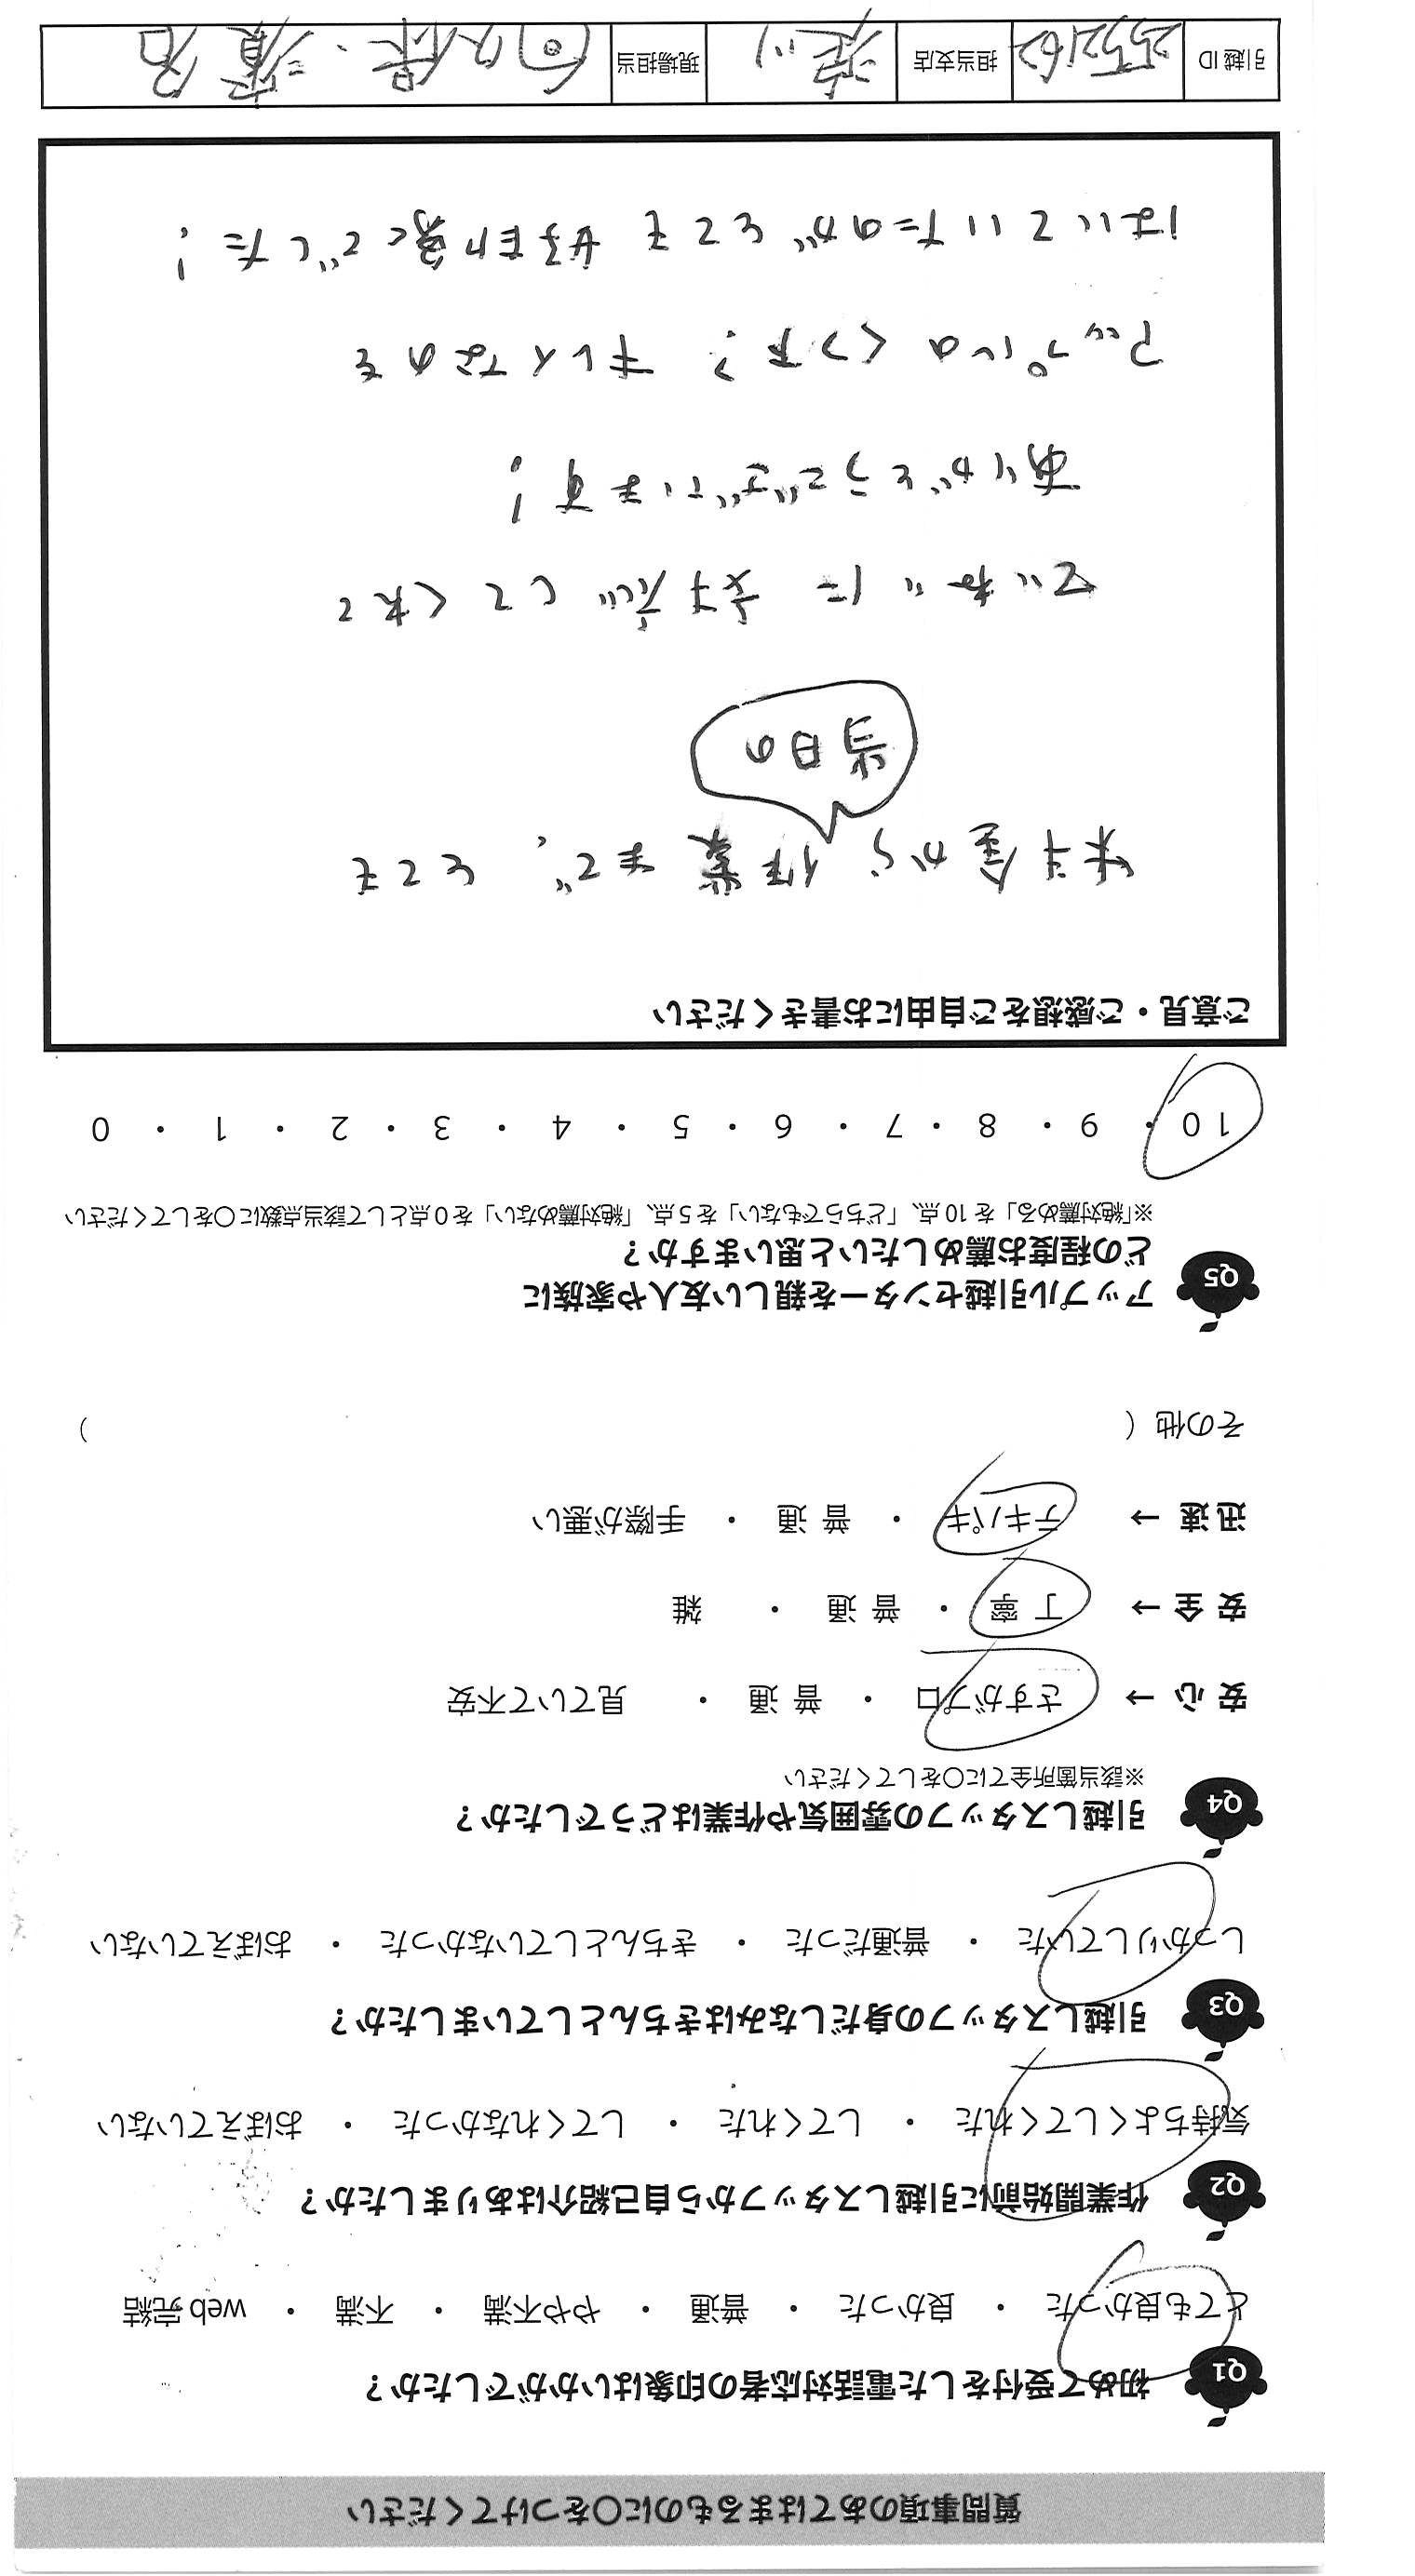 質問事項のあてはまるものに〇をつけてください
Q1 初めて受付をした電話対応者の印象はいかがでしたか？
とても良かった ・ 良かった ・ 普通 ・ やや不満 ・ 不満 ・ web完結
Q2 作業開始前に引越しスタッフから自己紹介はありましたか？
気持ちよくしてくれた ・ してくれた ・ してくれなかった ・ おぼえていない
Q3 引越しスタッフの身だしなみはきちんとしていましたか？
しっかりしていた ・ 普通だった ・ きちんとしていなかった ・ おぼえていない
Q4 引越しスタッフの雰囲気や作業はどうでしたか？
※該当箇所全てに〇をしてください
安心 → さすがプロ ・ 普通 ・ 見ていて不安
安全 → 丁寧 ・ 普通 ・ 雑
迅速 → テキパキ ・ 普通 ・ 手際が悪い
その他（ ）
Q5 アップル引越センターを親しい友人や家族に
どの程度お薦めしたいと思いますか？
※「絶対薦める」を10点、「どちらでもない」を5点、「絶対薦めない」を0点として該当点数に〇をしてください
10 ・ 9 ・ 8 ・ 7 ・ 6 ・ 5 ・ 4 ・ 3 ・ 2 ・ 1 ・ 0
ご意見・ご感想をご自由にお書きください
料金から作業まで、とても
当日の
ていねいに対応してくれて
ありがとうございます！
アップルのくつ下？キレイなのを
はいていたのがとても好印象でした！
引越ID 担当支店 現場担当